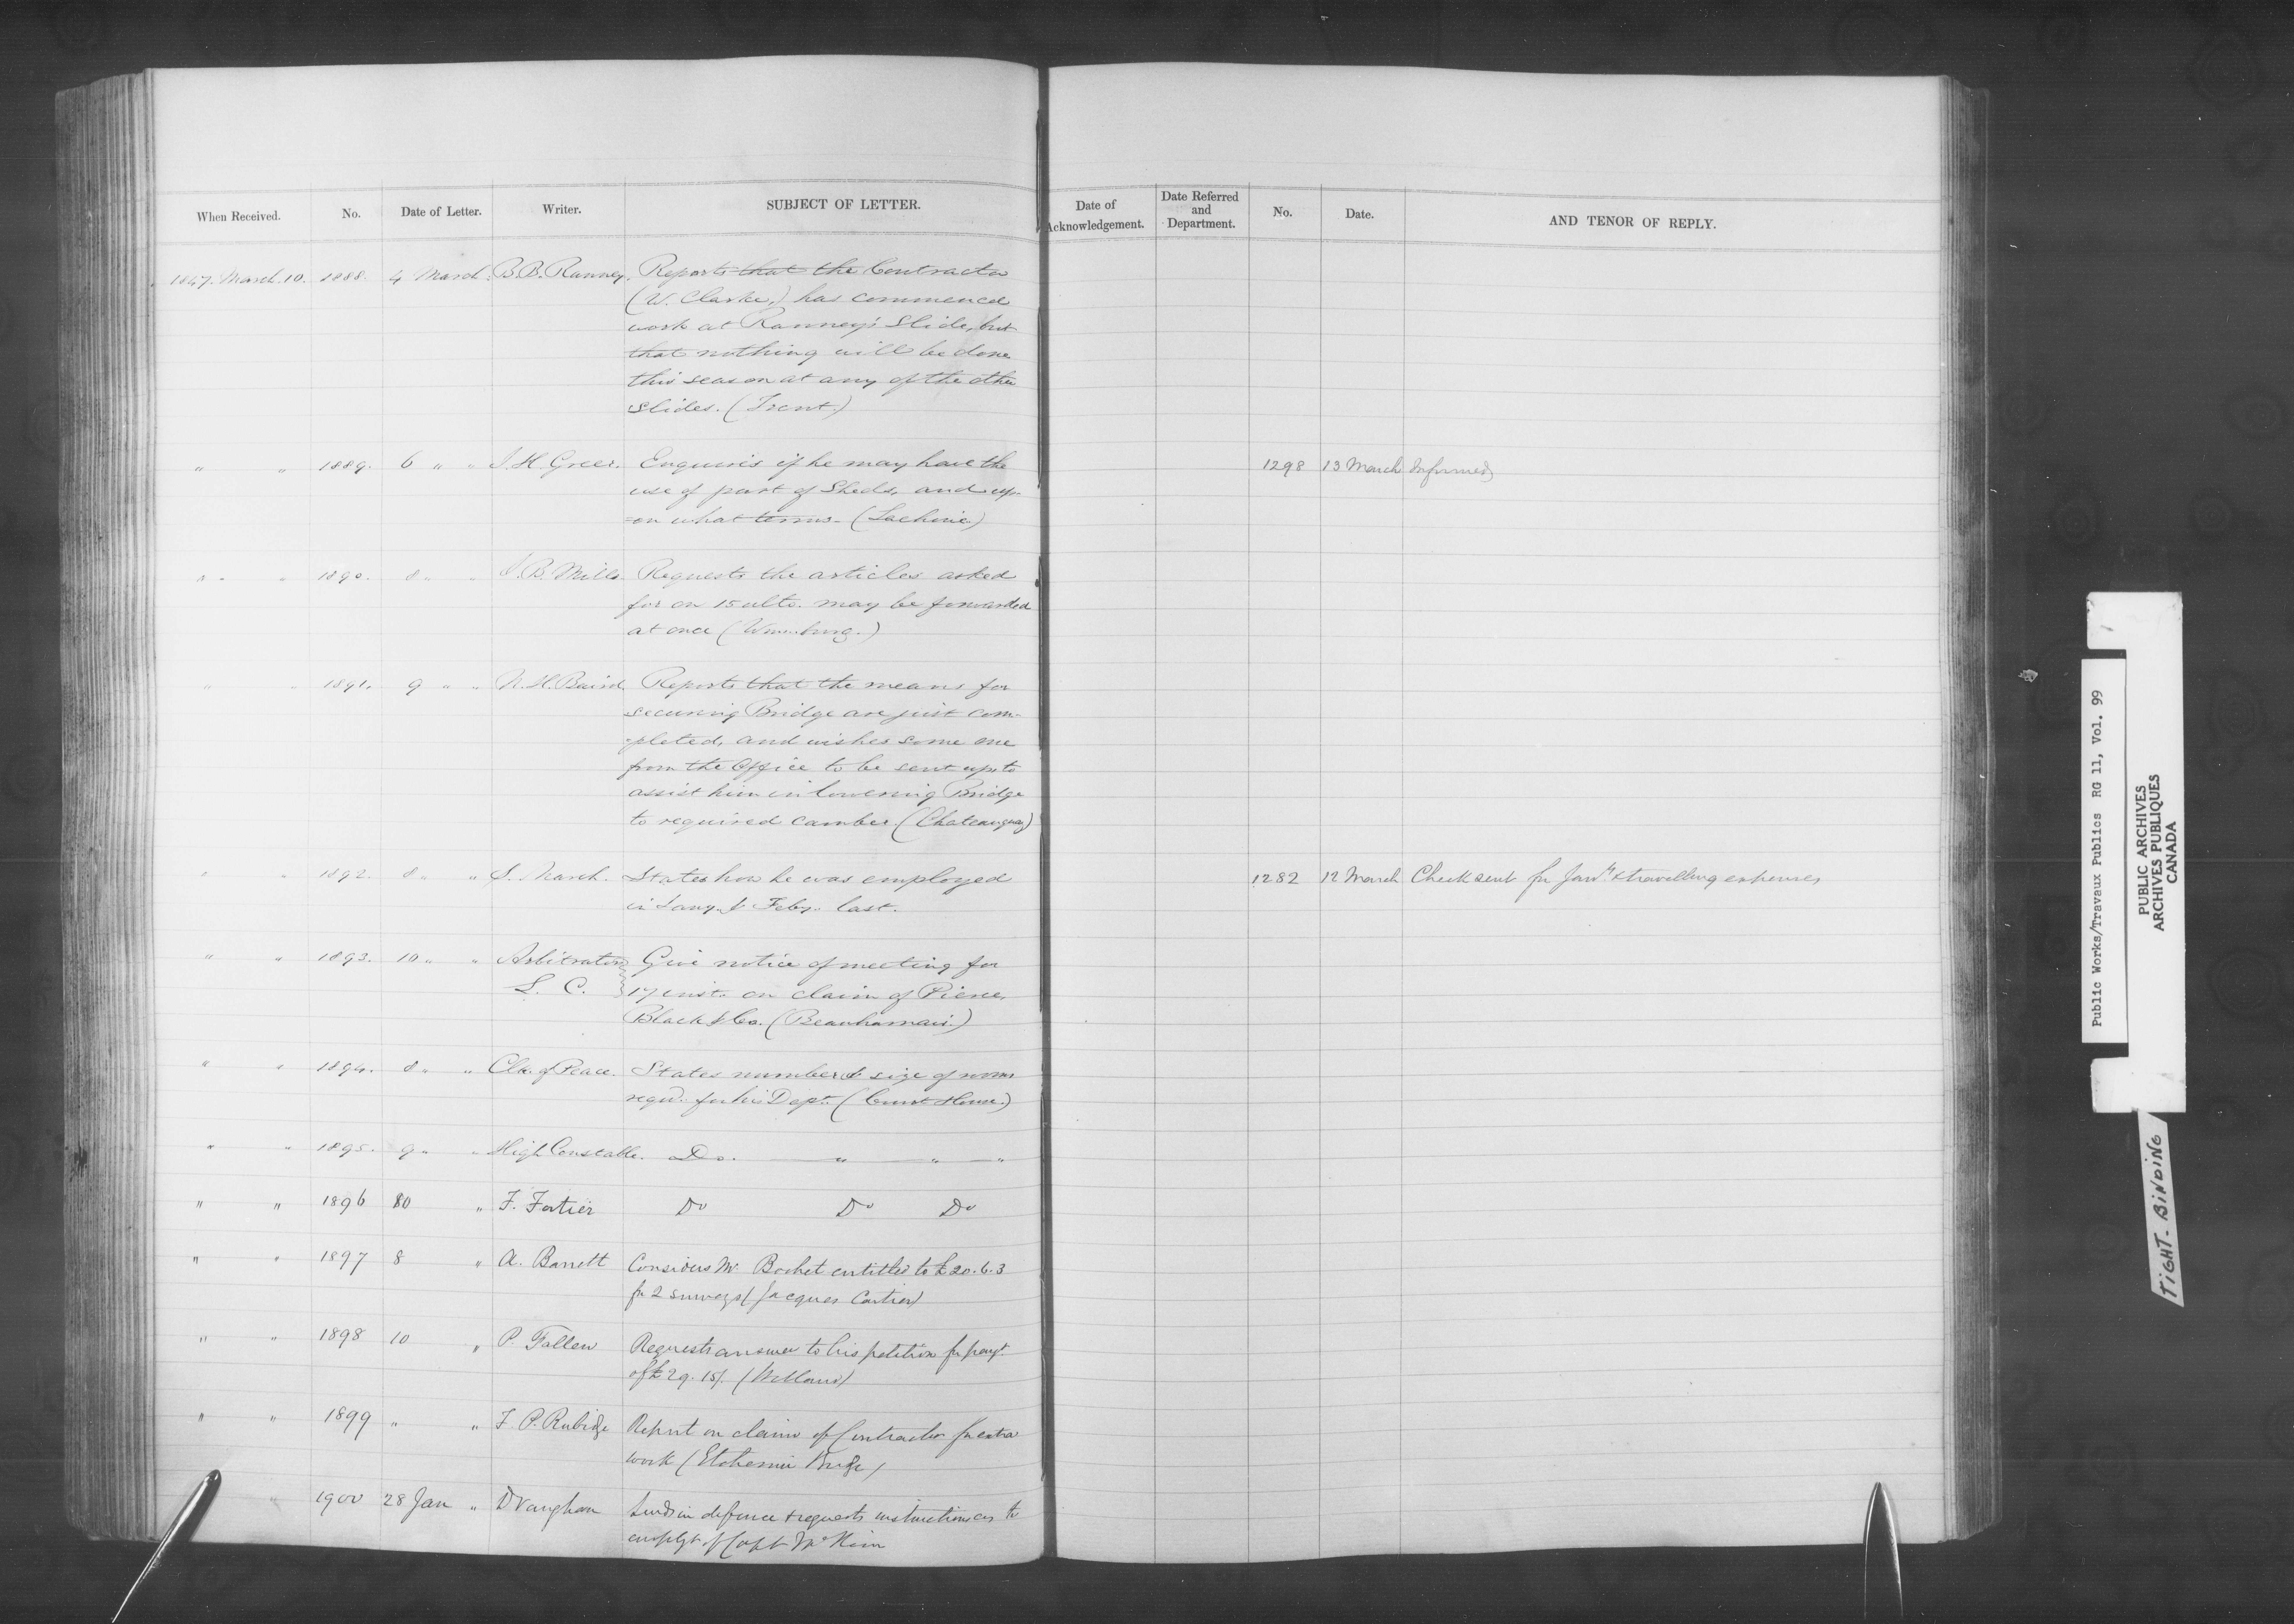 When Received. No. Date of Letter. Writer. SUBJECT OF LETTER.
Date of Acknowledgement. Date Referred and Department. No. Date. AND TENOR OF REPLY.
1847. March. 10. 1888. 4 March. B.B. Ranney. Reports that the Contractor
(W. Clarke,) has commenced
work at Ranney's Slide, but
that nothing will be done
this season at any of the other
Slides. (Trent.)
" " 1889. 6 " " J.H. Greer. Enquires if he may have the
use of part of Sheds, and up-
=on what terms. (Lachine)
1298 13 March Informed
" " 1890. 8 " " J.B. Mills. Requests the articles asked
for on 15 ulto. may be forwarded
at once
" " 1891. 9 " " N.H. Baird. Reports that the means for
securing Bridge are just com-
-pleted, and wishes some one
from the Office to be sent up to
assist him in lowering Bridge
to required camber. (Chateauguay)
" " 1892. 8 " " S. March. States how he was employed
in Jany. & Feby. last.
1282 12 March Check sent for & travelling expenses
" " 1893. 10 " " Arbitrators Give notice of meeting for
L. C. 17 inst. on claim of Pierce,
Black & Co. (Beauharnais.)
" " 1894. 8 " " Clk. of Peace. States number & size of rooms
reqd. for his Dept. (Court House.)
" " 1895. 9 " " High Constable. Do. " " "
" " 1896 10 " F. Fortier Do Do Do
" " 1897 8 " A. Barrett Considers Mr. Bochet entitled to £20.6.3
for 2 surveys (Jacques Cartier)
" " 1898 10 " P. Fallen Requests answer to his petition for payt.
of £29.15/. (Welland)
" " 1899 " " F. P. Rubidge Report on claim of Contractor for extra
work (Etchemin Bridge)
" 1900 28 Jan " D Vaughan Sends in defence & requests instructions as to
emplyt of Capt McKim
Public Works/Travaux Publics RG 11, Vol. 99
PUBLIC ARCHIVES
ARCHIVES PUBLIQUES
CANADA
TIGHT-BINDING